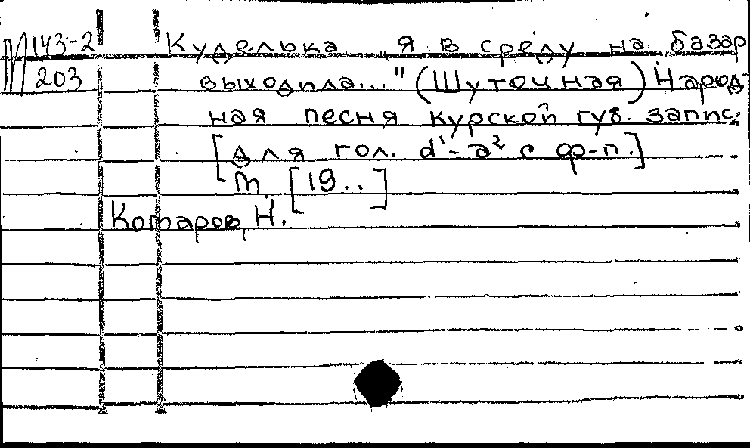 М 143-2 Куделька „Я в среду на базар
203 выходила..." (Шуточная) Народ-
ная песня Курской губ. запис.
[для гол. d¹-a² с ф-п.]
m. [19..]
Комаров, Н.